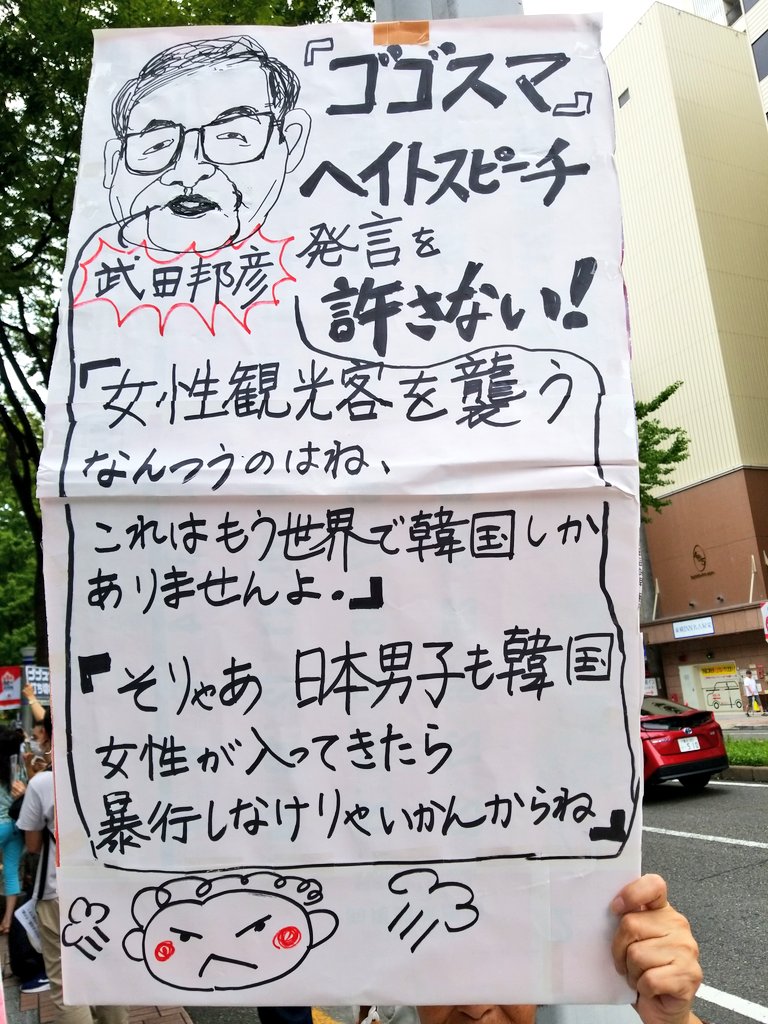 『ゴゴスマ』
ヘイトスピーチ
発言を
許さない!
武田邦彦
「女性観光客を襲う
なんつうのはね、
これはもう世界で韓国しか
ありませんよ.」
「そりゃあ 日本男子も韓国
女性が入ってきたら
暴行しなけりゃいかんからね」